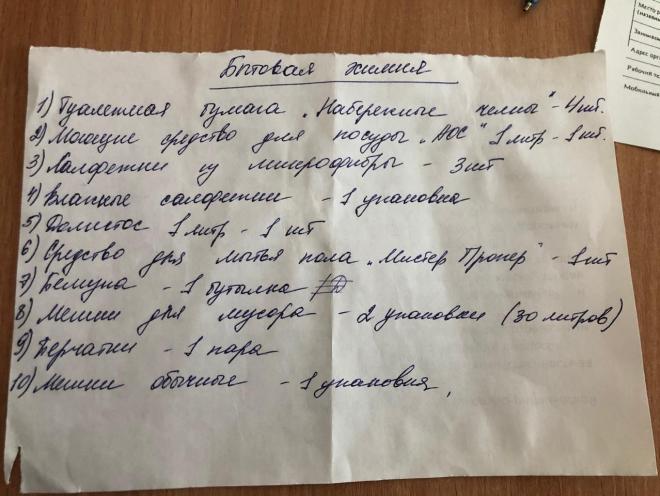 Бытовая химия
1) Туалетная бумага „Набережные челны" - 4 шт.
2) Моющие средство для посуды „АОС" 1 литр - 1 шт.
3) Салфетки из микрофибры - 3 шт
4) Влажные салфетки - 1 упаковка
5) Доместос 1 литр - 1 шт
6) Средство для мытья пола „Мистер Пропер" - 1 шт
7) Белизна - 1 бутылка
8) Мешки для мусора - 2 упаковки (30 литров)
9) Перчатки - 1 пара
10) Мешки обычные - 1 упаковка,
Место р
Занима
Адрес орг
Рабочий те
Мобильный